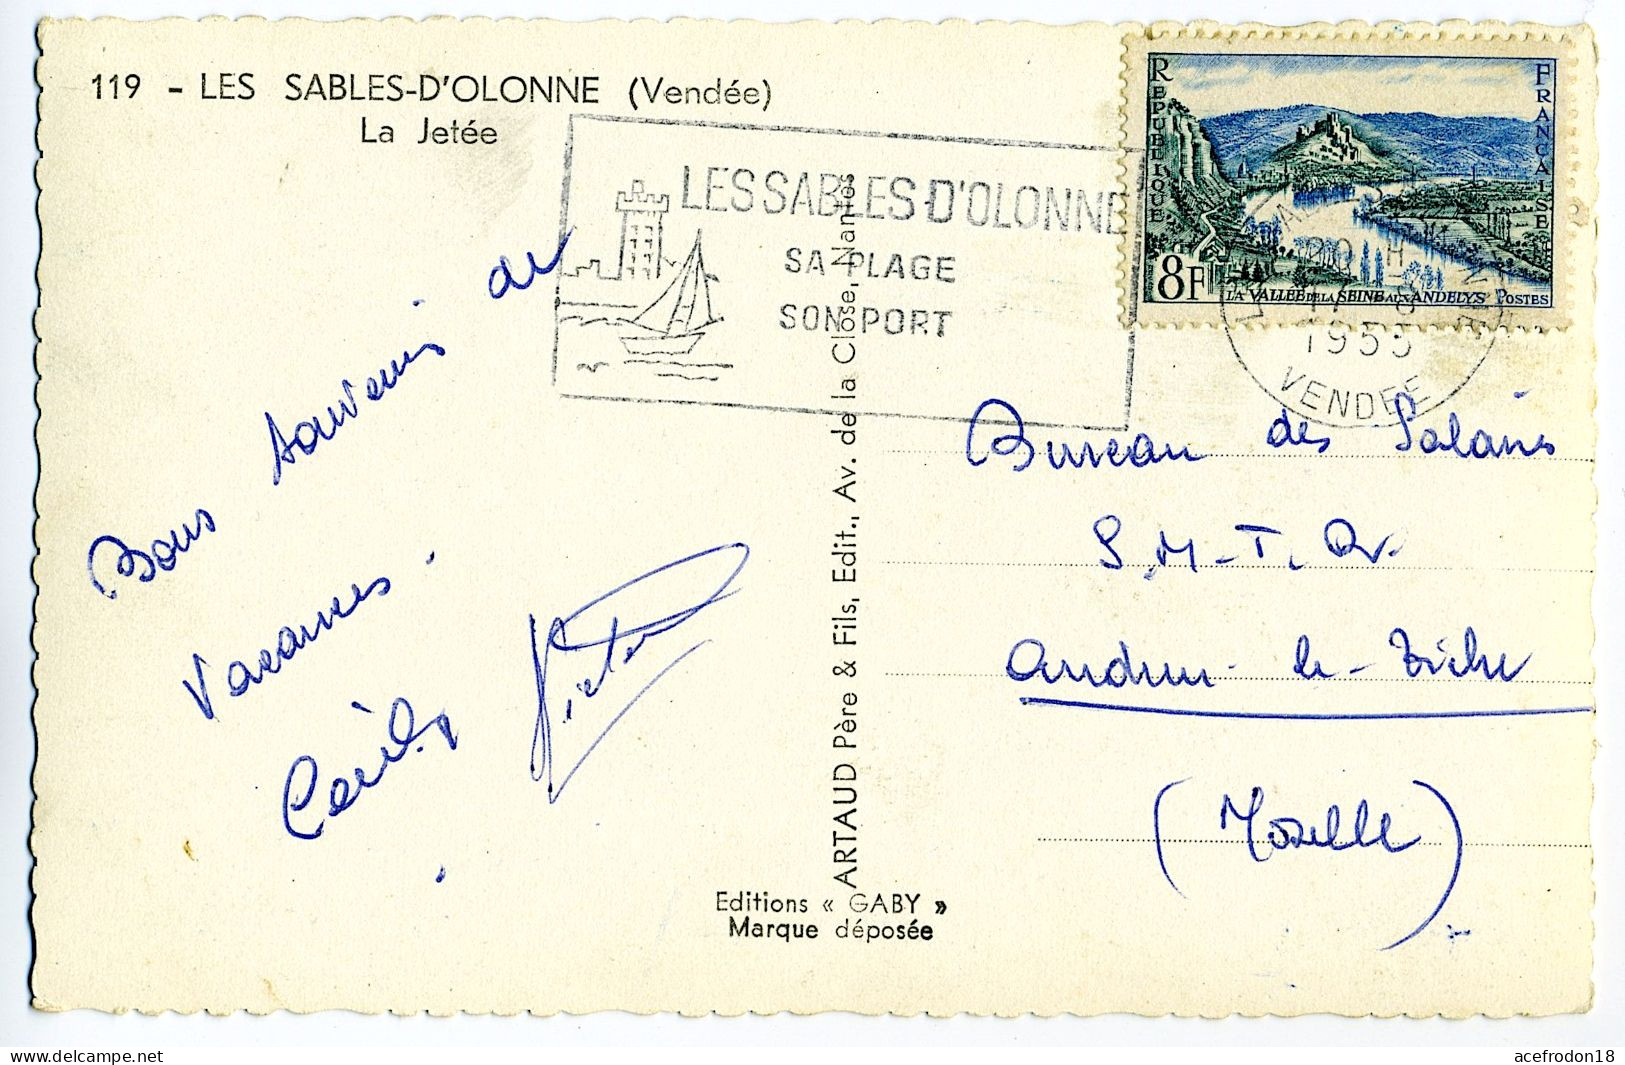 119 - LES SABLES-D'OLONNE (Vendée)
La Jetée
LES SABLES-D'OLONNE
SA PLAGE
SON PORT
REPUBLIQUE FRANÇAISE
8F
LA VALLEE DE LA SEINE AUX ANDELYS POSTES
1955
VENDEE
Bons souvenirs de
Vacances.
ARTAUD Père & Fils, Edit., Av. de la Close, Nantes
Bureau des Salaires
S.M.T.
Audun-le-Tiche
(Moselle)
Editions « GABY »
Marque déposée
acefrodon18